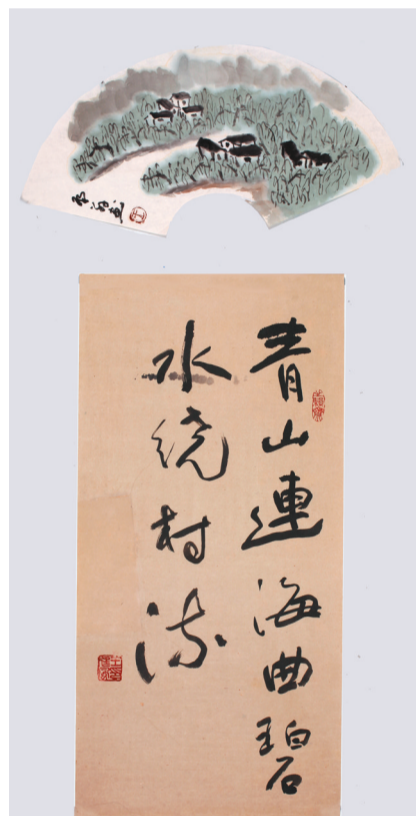 青山連海曲碧
水绕村流